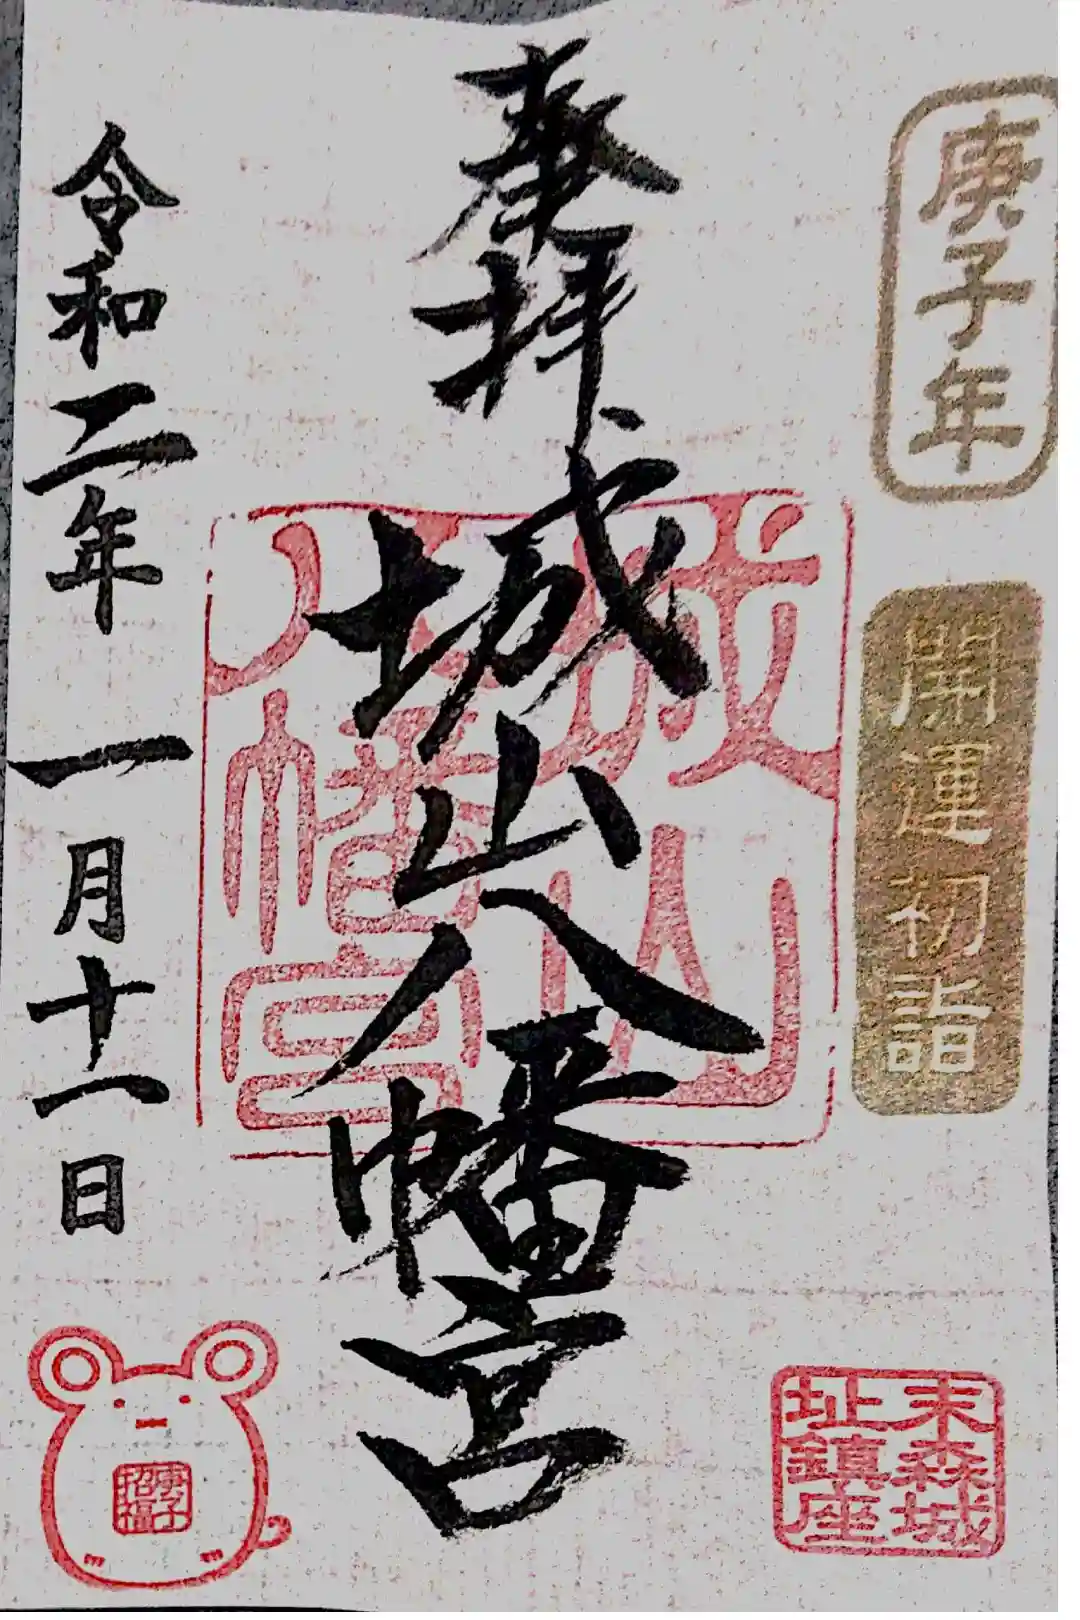 庚子年
開運初詣
奉拝
城山八幡宮
城山
八幡宮
令和二年 一月十一日
末森城
址鎮座
庚子
招福